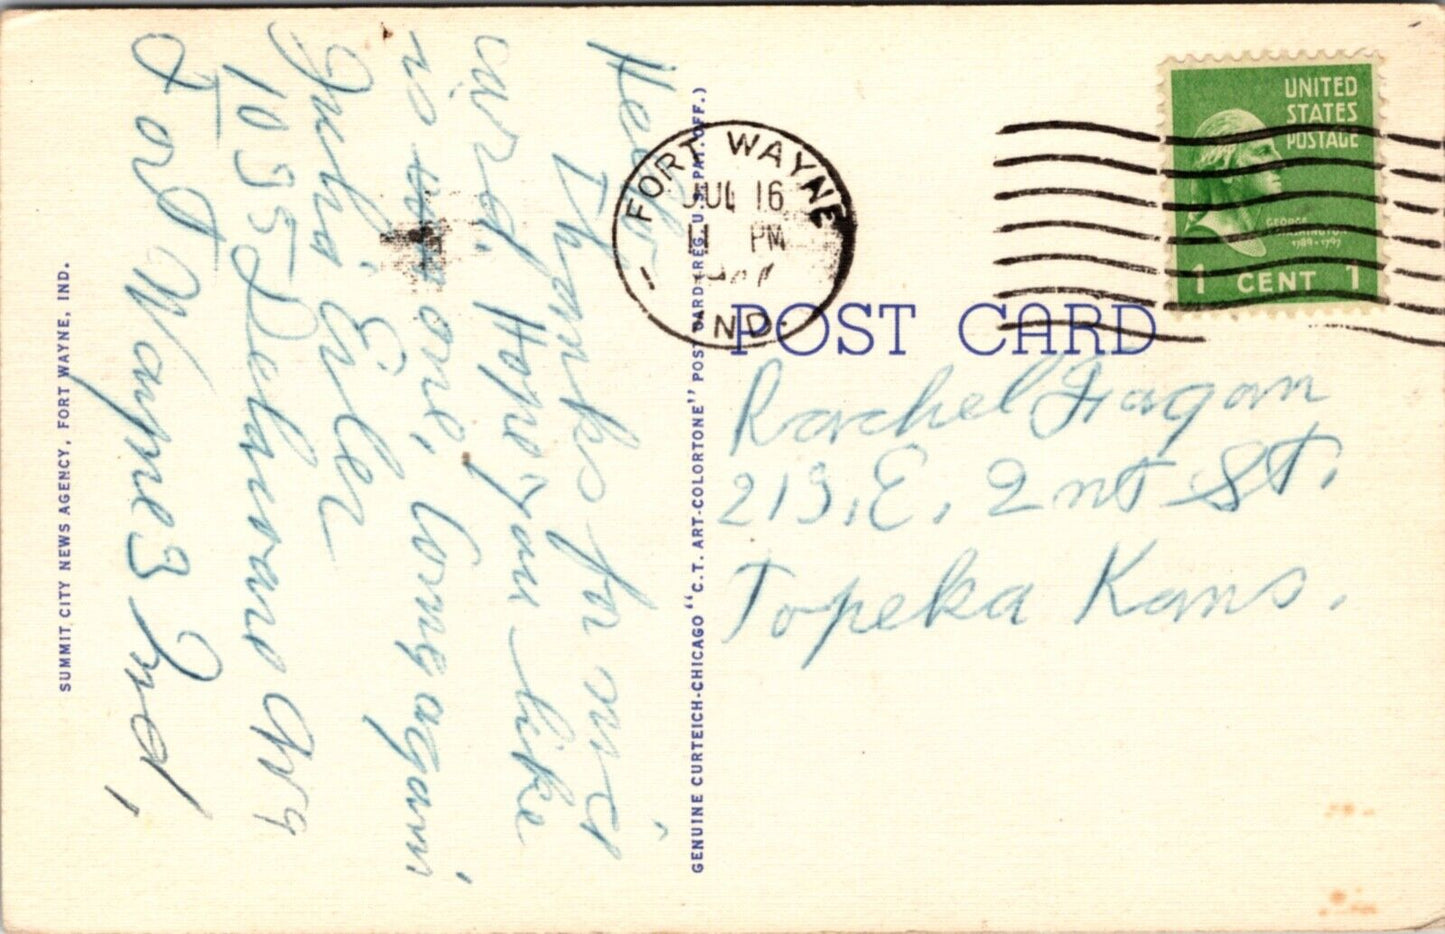 Hello,
Thanks for nice
card. Hope you like
this one, Come again
Eiler
1035 Delaware Av
Fort Wayne 3 Ind,
SUMMIT CITY NEWS AGENCY, FORT WAYNE, IND.
GENUINE CURTEICH-CHICAGO "C.T. ART-COLORTONE" POST CARD (REG. U.S. PAT. OFF.)
FORT WAYNE
JUL 16
PM
IND.
UNITED
STATES
POSTAGE
GEORGE
WASHINGTON
1789-1797
1 CENT 1
POST CARD
Rachel Fagan
213. E. 2nt St.
Topeka Kans.